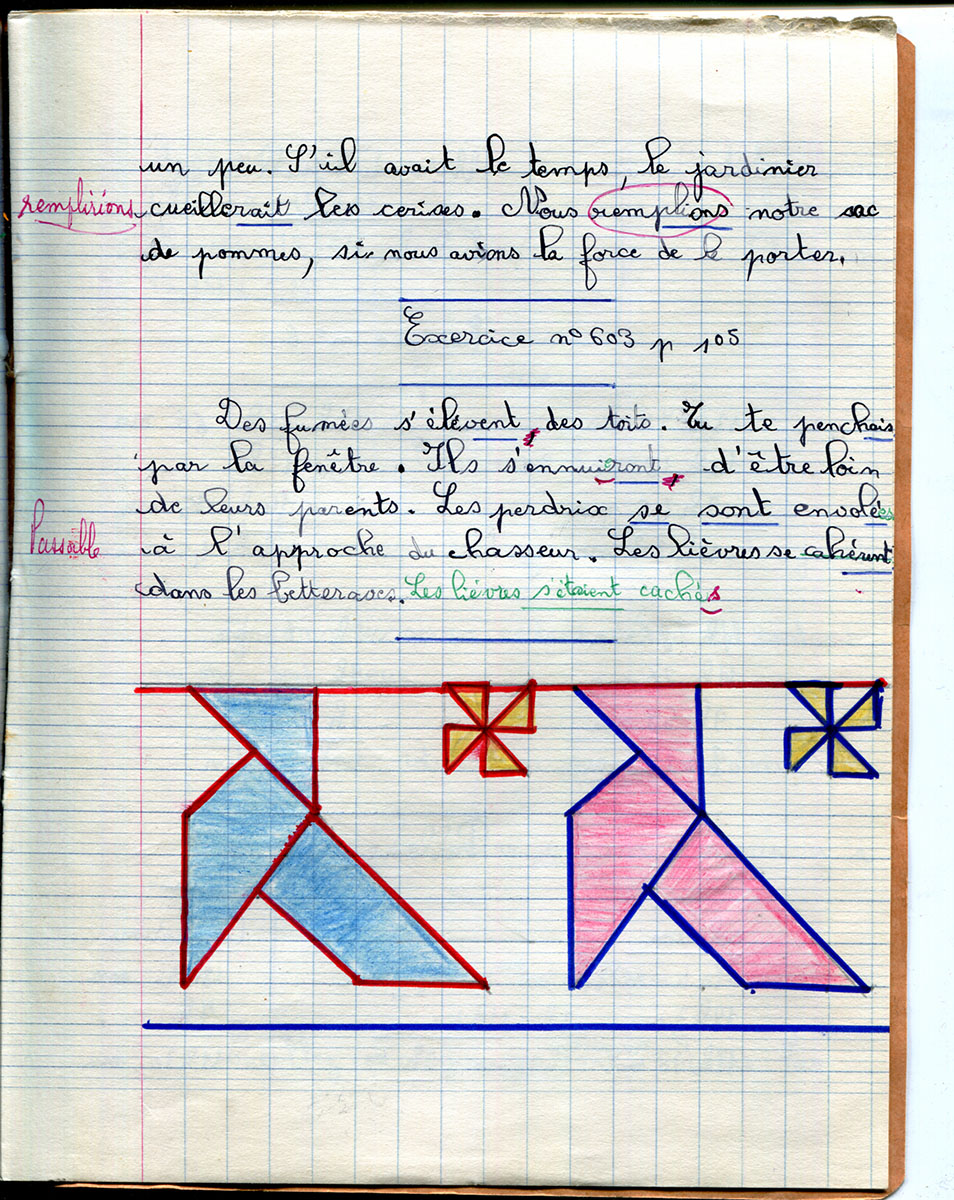 un peu. S'il avait le temps, le jardinier
remplirions cueillerait les cerises. Nous remplions notre sac
de pommes, si nous avions la force de le porter.
Exercice n° 603 p 105
Des fumées s'élèvent des toits. Tu te penchais
par la fenêtre. Ils s'ennuiront d'être loin
de leurs parents. Les perdrix se sont envolées
Passable à l'approche du chasseur. Les lièvres se cahérent
dans les betteraves. Les lièvres s'étaient cachés